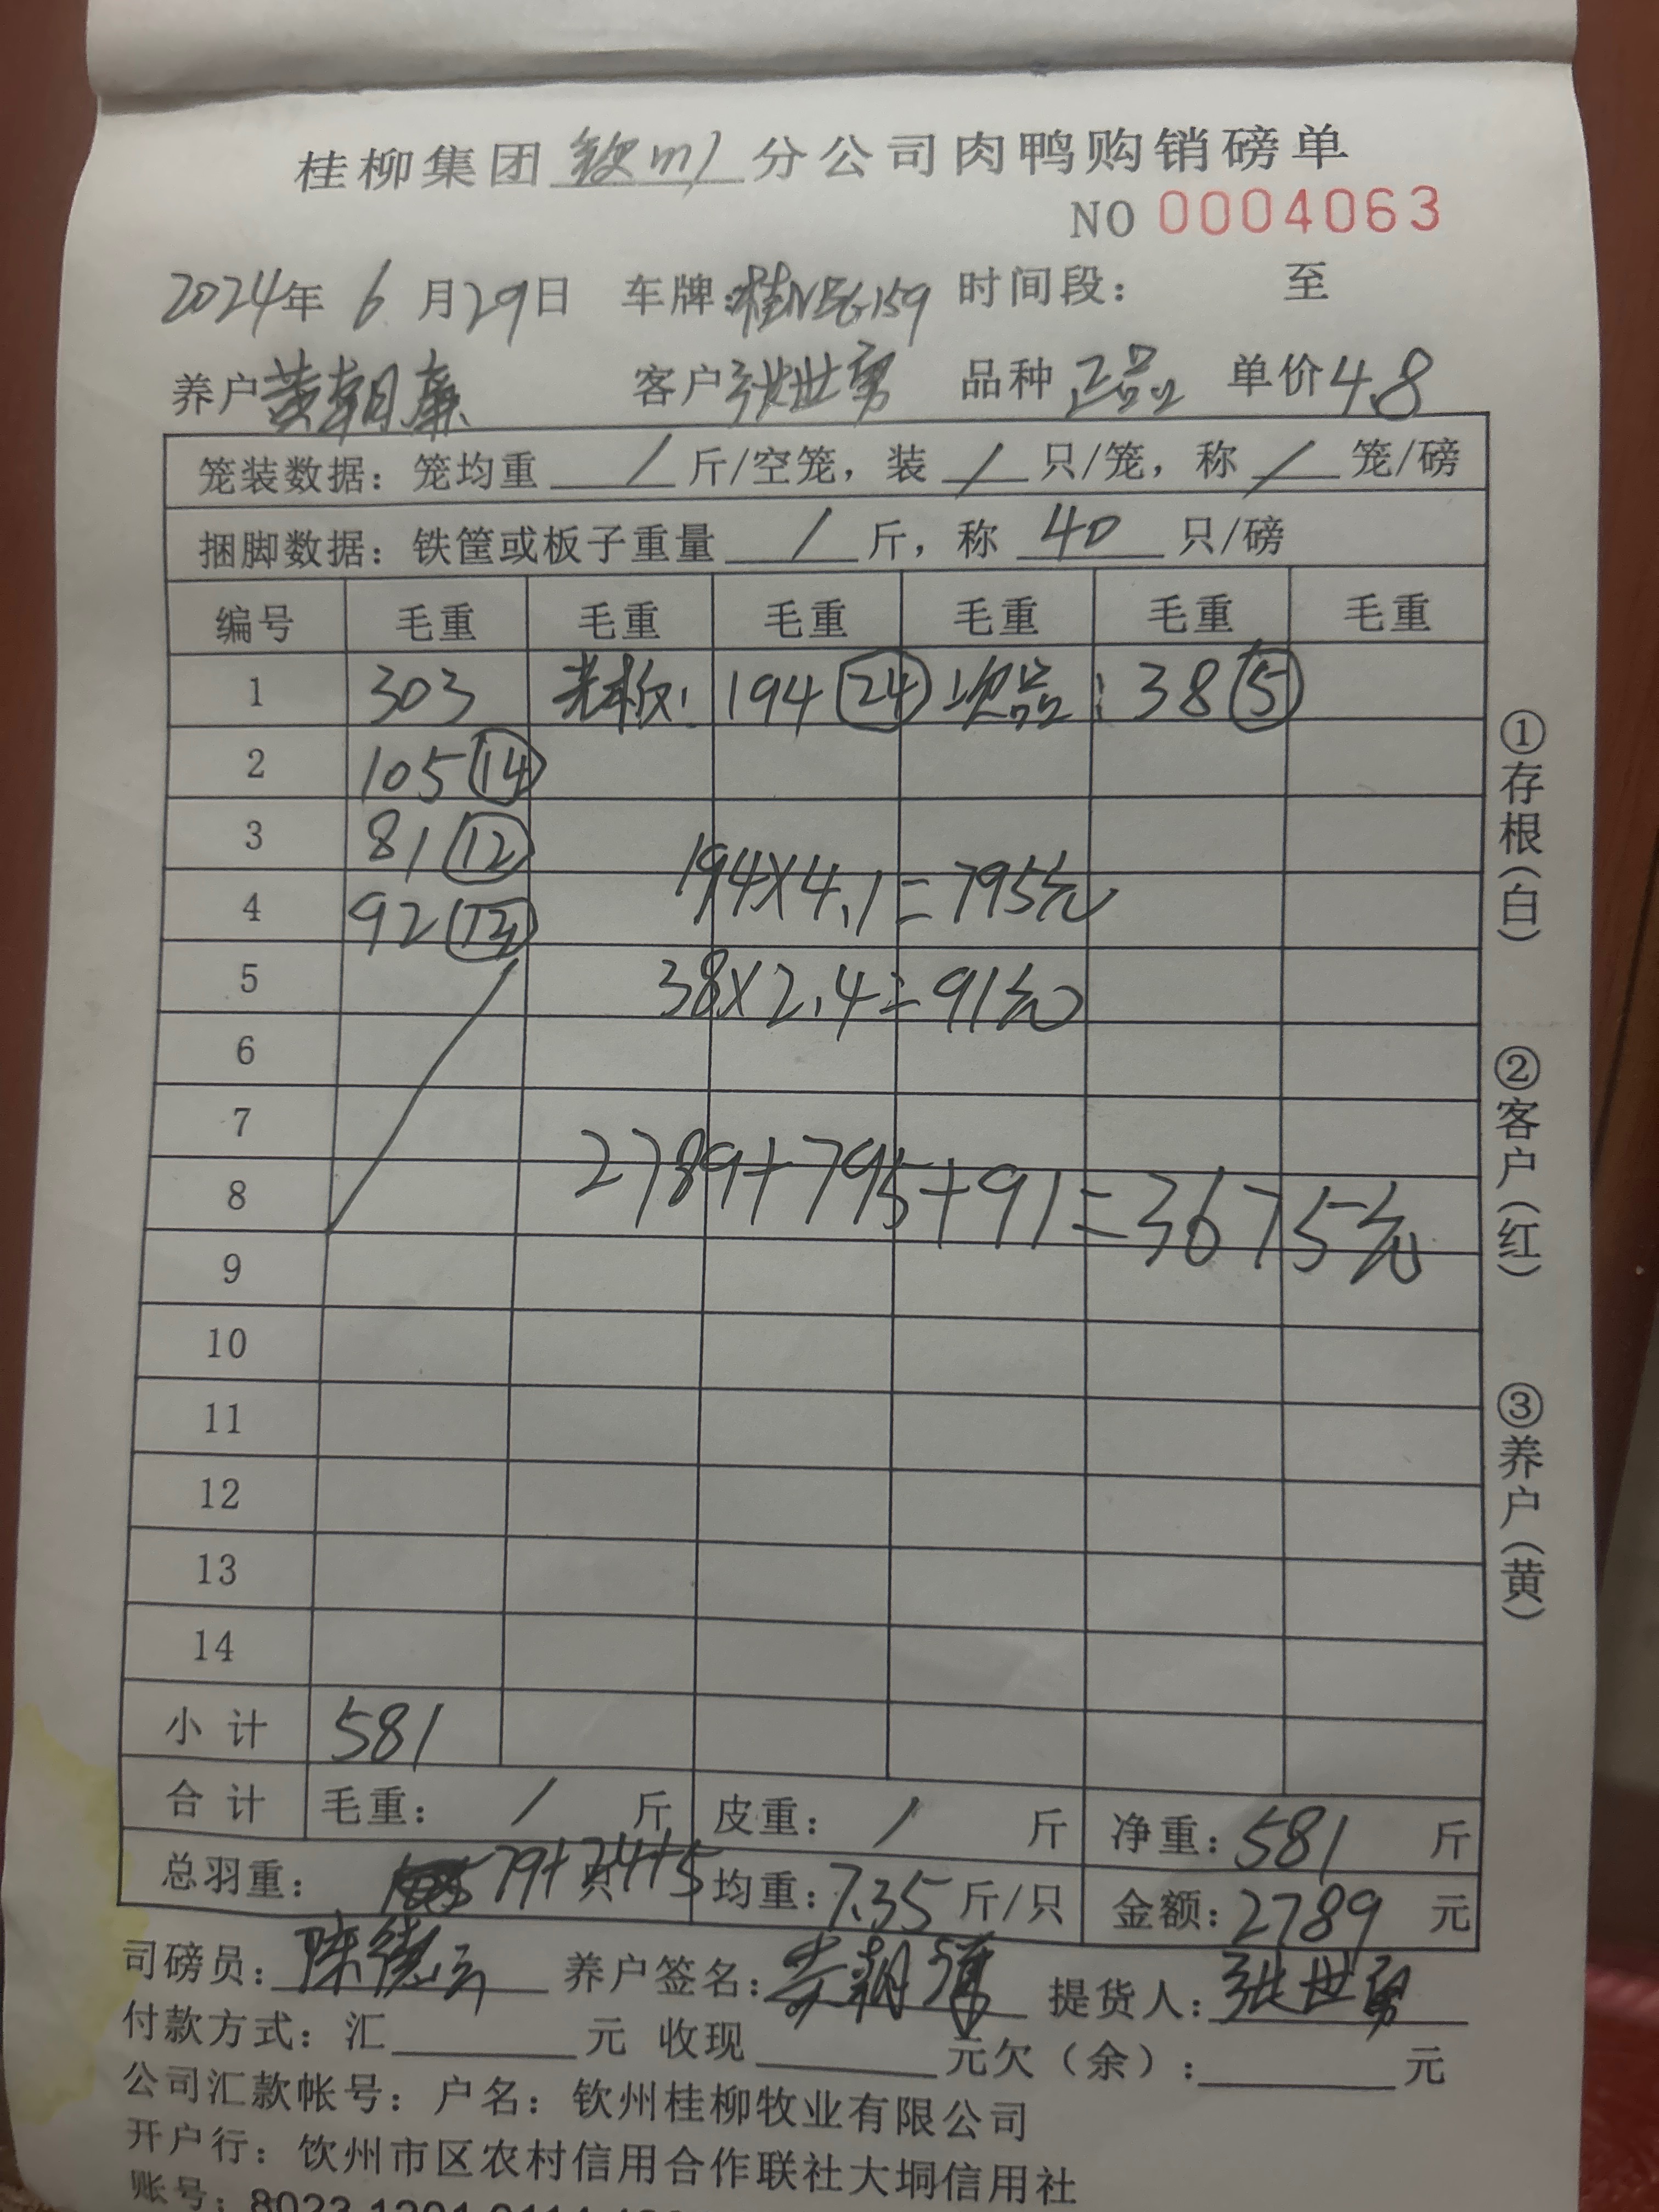 桂柳集团钦州分公司肉鸭购销磅单
NO 0004063
2024年 6 月29日 车牌:桂NEG159 时间段: 至
养户黄朝廉 客户张世勇 品种 正品 单价4.8
笼装数据:笼均重 / 斤/空笼,装 / 只/笼,称 / 笼/磅
捆脚数据:铁筐或板子重量 / 斤,称 40 只/磅
编号 毛重 毛重 毛重 毛重 毛重 毛重
1 303 老板: 194 24 次品: 38 5
2 105 14
3 81 12
4 92 13
194×4.1=795元
5
38×2.4=91元
6
7
8
2789+795+91=3675元
9
10
11
12
13
14
小计 581
合计 毛重: / 斤 皮重: / 斤 净重:581 斤
总羽重: 79+24+5 只 均重:7.35斤/只 金额:2789 元
司磅员:陈德 养户签名:黄朝廉 提货人:张世勇
付款方式:汇 元 收现 元欠(余): 元
公司汇款帐号:户名:钦州桂柳牧业有限公司
开户行:钦州市区农村信用合作联社大垌信用社
账号:8023 1201 0114
①存根(白)
②客户(红)
③养户(黄)